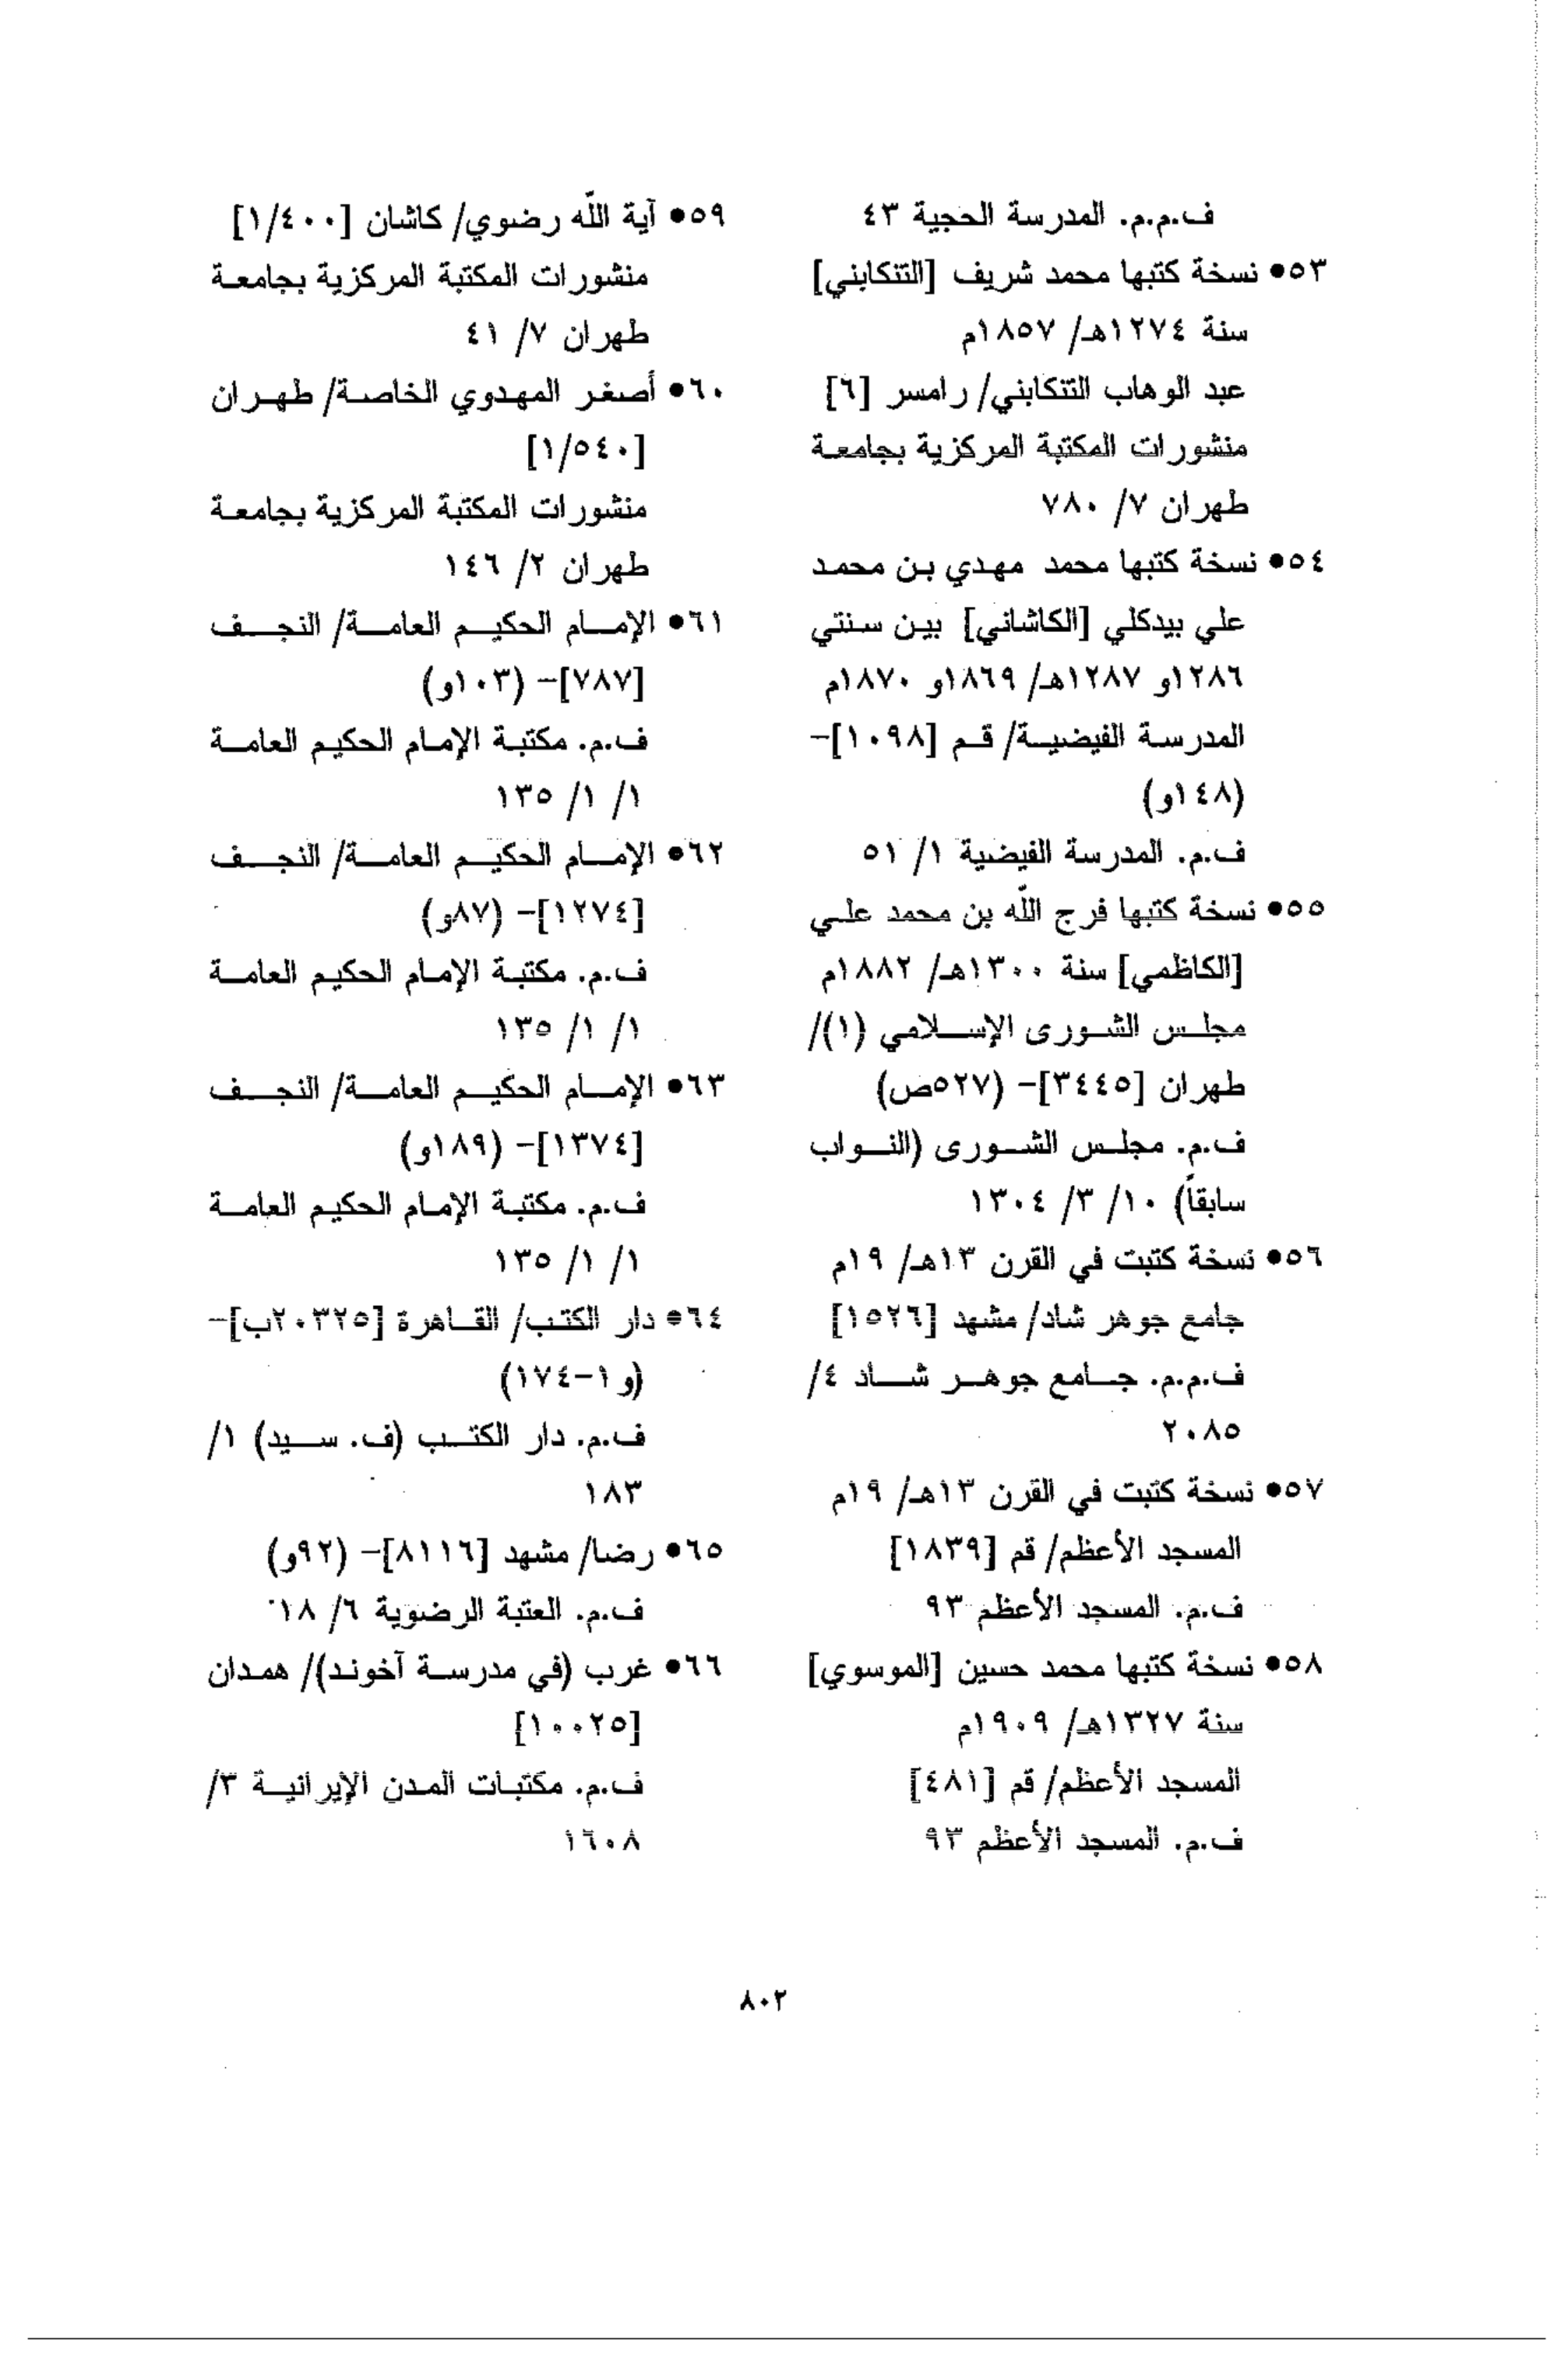 ف.م.م. المدرسة الحجية ٤٣
٥٣● نسخة كتبها محمد شريف [التنكابني]
سنة ١٢٧٤هـ/ ١٨٥٧م
عبد الوهاب التنكابني/ رامسر [٦]
منشورات المكتبة المركزية بجامعة
طهران ٧/ ٧٨٠
٥٤● نسخة كتبها محمد مهدي بن محمد
علي بيدكلي [الكاشاني] بين سنتي
١٢٨٦و ١٢٨٧هـ/ ١٨٦٩و ١٨٧٠م
المدرسة الفيضية/ قم [١٠٩٨]–
(١٤٨و)
ف.م. المدرسة الفيضية ١/ ٥١
٥٥● نسخة كتبها فرج الله بن محمد علي
[الكاظمي] سنة ١٣٠٠هـ/ ١٨٨٢م
مجلس الشورى الإسلامي (١)/
طهران [٣٤٤٥]– (٥٢٧ص)
ف.م. مجلس الشورى (النواب
سابقاً) ١٠/ ٣/ ١٣٠٤
٥٦● نسخة كتبت في القرن ١٣هـ/ ١٩م
جامع جوهر شاد/ مشهد [١٥٢٦]
ف.م.م. جامع جوهر شاد ٤/
٢٠٨٥
٥٧● نسخة كتبت في القرن ١٣هـ/ ١٩م
المسجد الأعظم/ قم [١٨٣٩]
ف.م. المسجد الأعظم ٩٣
٥٨● نسخة كتبها محمد حسين [الموسوي]
سنة ١٣٢٧هـ/ ١٩٠٩م
المسجد الأعظم/ قم [٤٨١]
ف.م. المسجد الأعظم ٩٣
٥٩● آية الله رضوي/ كاشان [١/٤٠٠]
منشورات المكتبة المركزية بجامعة
طهران ٧/ ٤١
٦٠● أصغر المهدوي الخاصة/ طهران
[١/٥٤٠]
منشورات المكتبة المركزية بجامعة
طهران ٢/ ١٤٦
٦١● الإمام الحكيم العامة/ النجف
[٧٨٧]– (١٠٣و)
ف.م. مكتبة الإمام الحكيم العامة
١/ ١/ ١٣٥
٦٢● الإمام الحكيم العامة/ النجف
[١٢٧٤]– (٨٧و)
ف.م. مكتبة الإمام الحكيم العامة
١/ ١/ ١٣٥
٦٣● الإمام الحكيم العامة/ النجف
[١٣٧٤]– (١٨٩و)
ف.م. مكتبة الإمام الحكيم العامة
١/ ١/ ١٣٥
٦٤● دار الكتب/ القاهرة [٢٠٣٢٥ب]–
(و ١–١٧٤)
ف.م. دار الكتب (ف. سيد) ١/
١٨٣
٦٥● رضا/ مشهد [٨١١٦]– (٩٢و)
ف.م. العتبة الرضوية ٦/ ١٨
٦٦● غرب (في مدرسة آخوند)/ همدان
[١٠٠٢٥]
ف.م. مكتبات المدن الإيرانية ٣/
١٦٠٨
٨٠٢